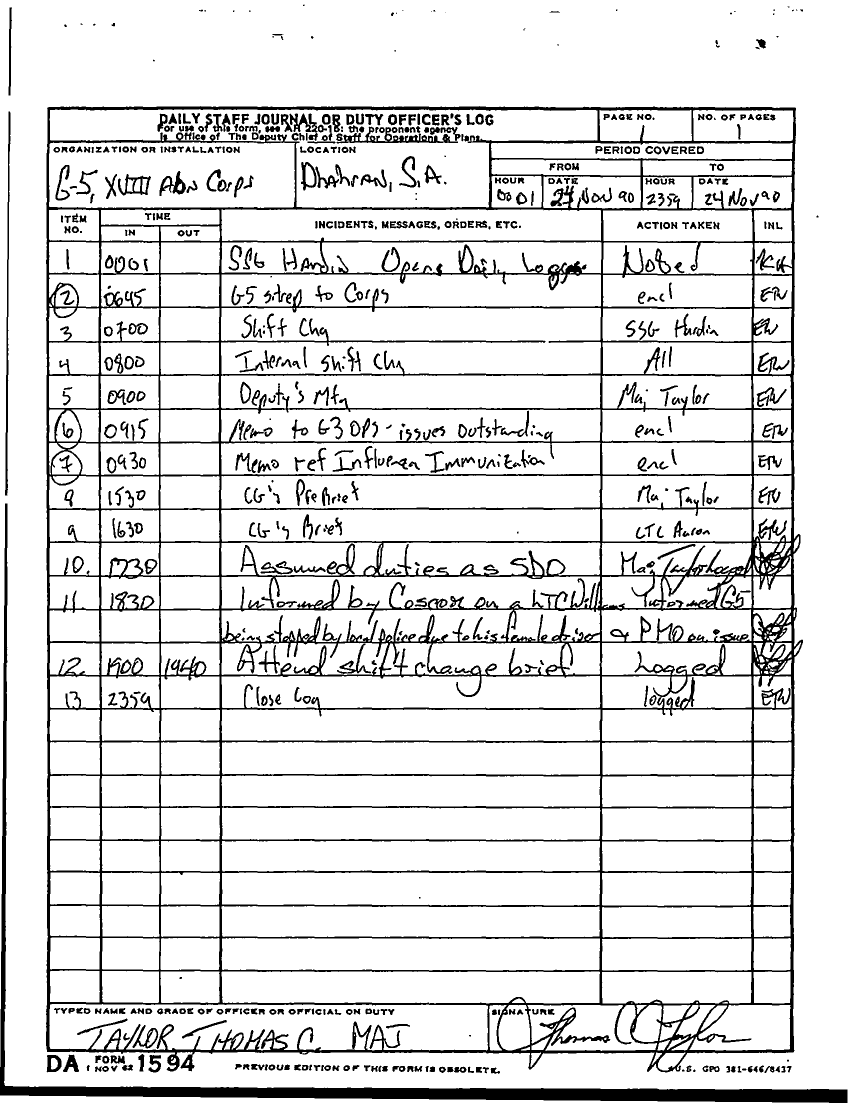 DAILY STAFF JOURNAL OR DUTY OFFICER'S LOG
For use of this form, see AR 220-15; the proponent agency
is Office of The Deputy Chief of Staff for Operations & Plans.
PAGE NO.
1
NO. OF PAGES
1
ORGANIZATION OR INSTALLATION
G-5, XVIII Abn Corps
LOCATION
Dhahran, S.A.
PERIOD COVERED
FROM TO
HOUR DATE HOUR DATE
0001 24 Nov 90 2359 24 Nov 90
ITEM NO. TIME IN OUT INCIDENTS, MESSAGES, ORDERS, ETC. ACTION TAKEN INL
1 0001 SSG Hardin Opens Daily Log Noted KH
2 0645 G5 sitrep to Corps encl ETW
3 0700 Shift Chg SSG Hardin ETW
4 0800 Internal Shift Chg All ETW
5 0900 Deputy's Mtg Maj Taylor ETW
6 0915 Memo to G3 OPS - issues outstanding encl ETW
7 0930 Memo ref Influenza Immunization encl ETW
8 1530 CG's PreBrief Maj Taylor ETW
9 1630 CG's Brief LTC Aaron ETW
10. 1730 Assumed duties as SDO Maj Taylor logged
11. 1830 Informed by Coscom on a LTC Williams Informed G5
being stopped by local police due to his female driver & PMO on issue
12. 1900 1940 Attend shift change brief. Logged
13 2359 Close Log logged ETW
TYPED NAME AND GRADE OF OFFICER OR OFFICIAL ON DUTY
TAYLOR, THOMAS C. MAJ
SIGNATURE
Thomas C Taylor
DA FORM 1 NOV 62 1594
PREVIOUS EDITION OF THIS FORM IS OBSOLETE.
U.S. GPO 381-646/8437